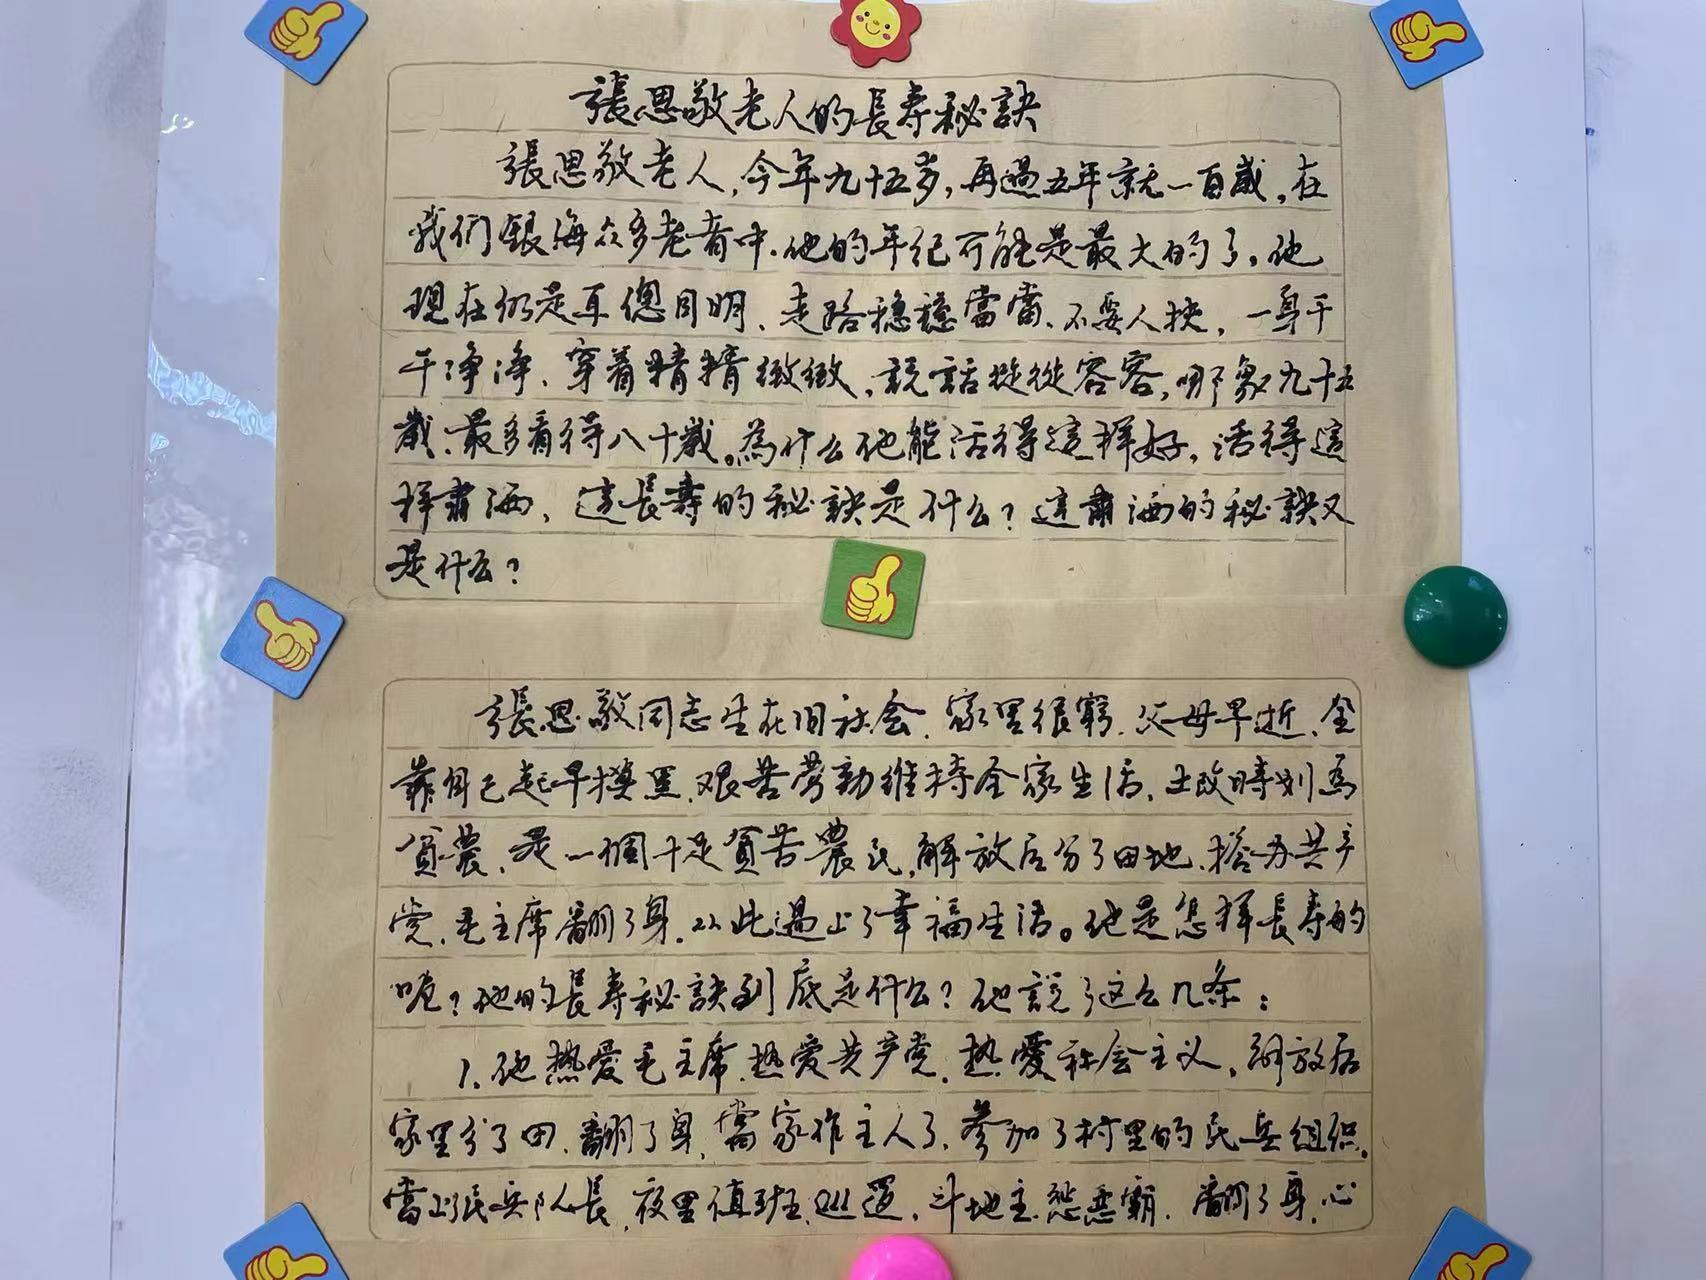 張思敬老人的長寿秘訣
張思敬老人，今年九十五岁，再過五年就一百歲，在
我们銀海众多老者中．他的年纪可能是最大的了。他
現在仍是耳偬目明、走路穏穏當當、不要人扶，一身干
干净净、穿着精精緻緻，説話從從容容，哪象九十五
歲、最多看得八十歲。為什么他能活得這样好，活得這
样肅洒、這長壽的秘訣是什么？這肅洒的秘訣又
是什么？
張思敬同志生在旧社会．家里很窮．父母早逝、全
靠自己起早摸黑、艰苦劳動維持全家生活，土改時划為
貧農，是一個十足貧苦農民，解放后分了田地、搭帮共产
党、毛主席翻了身．从此過上了幸福生活。他是怎样長寿的
呢？他的長寿秘訣到底是什么？他説了这么几条：
1、他热爱毛主席、热爱共产党，热愛社会主义，解放后
家里分了田、翻了身，當家作主人了，参加了村里的民兵組织．
當上民兵队長，夜里值班、巡逻，斗地主、惩悪霸．翻了身，心